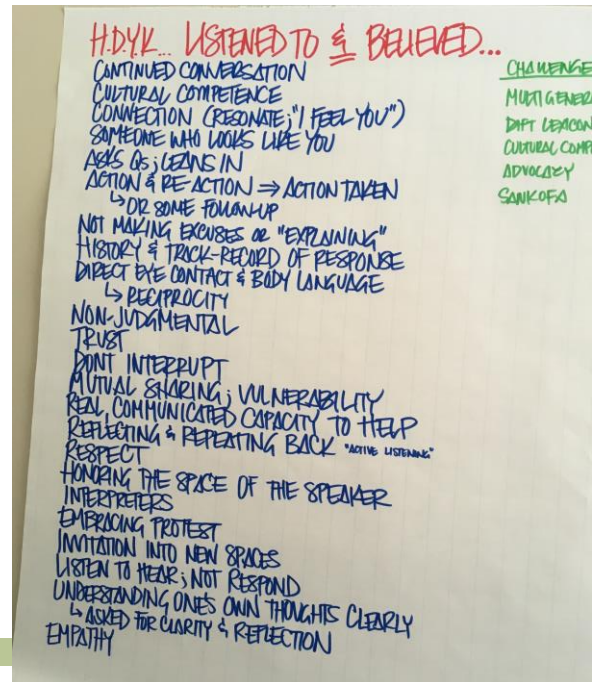 H.D.Y.K... LISTENED TO & BELIEVED...
CONTINUED CONVERSATION
CULTURAL COMPETENCE
CONNECTION (RESONATE; "I FEEL YOU")
SOMEONE WHO LOOKS LIKE YOU
ASKS Qs; LEANS IN
ACTION & RE-ACTION ⇒ ACTION TAKEN
↳ OR SOME FOLLOW-UP
NOT MAKING EXCUSES OR "EXPLAINING"
HISTORY & TRACK-RECORD OF RESPONSE
DIRECT EYE CONTACT & BODY LANGUAGE
↳ RECIPROCITY
NON-JUDGMENTAL
TRUST
DONT INTERRUPT
MUTUAL SHARING; VULNERABILITY
REAL, COMMUNICATED CAPACITY TO HELP
REFLECTING & REPEATING BACK "ACTIVE LISTENING"
RESPECT
HONORING THE SPACE OF THE SPEAKER
INTERPRETERS
EMBRACING PROTEST
INVITATION INTO NEW SPACES
LISTEN TO HEAR; NOT RESPOND
UNDERSTANDING ONE'S OWN THOUGHTS CLEARLY
↳ ASKED FOR CLARITY & REFLECTION
EMPATHY
CHALLENGE
MULTIGENERA
LEXICON
CULTURAL COMPE
ADVOCACY
SANKOFA